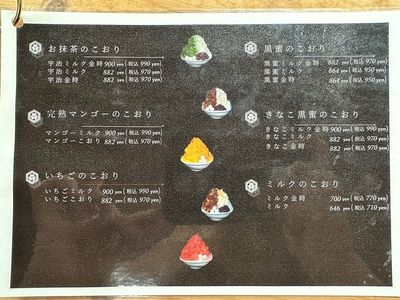 お抹茶のこおり
宇治ミルク金時 900 yen(税込 990 yen)
宇治ミルク 882 yen(税込 970 yen)
宇治金時 882 yen(税込 970 yen)
完熟マンゴーのこおり
マンゴーミルク 900 yen(税込 990 yen)
マンゴーこおり 882 yen(税込 970 yen)
いちごのこおり
いちごミルク 900 yen(税込 990 yen)
いちごこおり 882 yen(税込 970 yen)
黒蜜のこおり
黒蜜ミルク金時 882 yen(税込 970 yen)
黒蜜ミルク 864 yen(税込 950 yen)
黒蜜金時 864 yen(税込 950 yen)
きなこ黒蜜のこおり
きなこミルク金時 900 yen(税込 990 yen)
きなこミルク 882 yen(税込 970 yen)
きなこ金時 882 yen(税込 970 yen)
ミルクのこおり
ミルク金時 700 yen(税込 770 yen)
ミルク 646 yen(税込 710 yen)